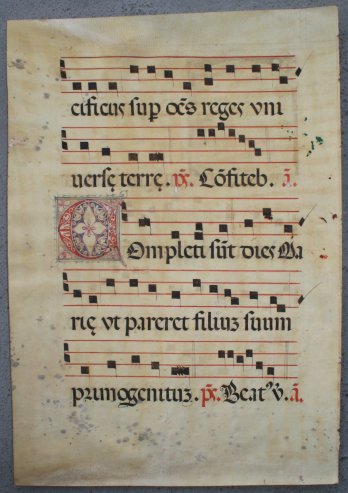 cificus sup oēs reges vni
uersę terrę. ps̄. Cōfiteb. ā.
Ompleti sūt dies Ma
rię vt pareret filiuz suum
primogenituz. ps̄. Beatꝰ v̄. ā.